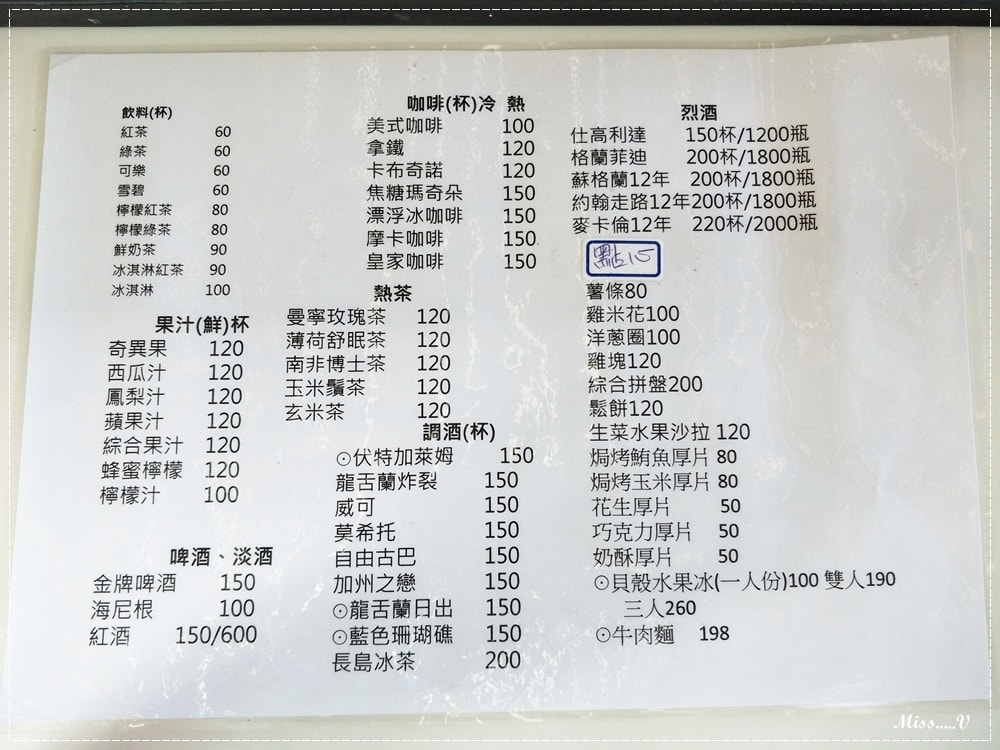 飲料(杯)
紅茶 60
綠茶 60
可樂 60
雪碧 60
檸檬紅茶 80
檸檬綠茶 80
鮮奶茶 90
冰淇淋紅茶 90
冰淇淋 100
果汁(鮮)杯
奇異果 120
西瓜汁 120
鳳梨汁 120
蘋果汁 120
綜合果汁 120
蜂蜜檸檬 120
檸檬汁 100
啤酒、淡酒
金牌啤酒 150
海尼根 100
紅酒 150/600
咖啡(杯)冷 熱
美式咖啡 100
拿鐵 120
卡布奇諾 120
焦糖瑪奇朵 150
漂浮冰咖啡 150
摩卡咖啡 150
皇家咖啡 150
熱茶
曼寧玫瑰茶 120
薄荷舒眠茶 120
南非博士茶 120
玉米鬚茶 120
玄米茶 120
調酒(杯)
⊙伏特加萊姆 150
龍舌蘭炸裂 150
威可 150
莫希托 150
自由古巴 150
加州之戀 150
⊙龍舌蘭日出 150
⊙藍色珊瑚礁 150
長島冰茶 200
烈酒
仕高利達 150杯/1200瓶
格蘭菲迪 200杯/1800瓶
蘇格蘭12年 200杯/1800瓶
約翰走路12年200杯/1800瓶
麥卡倫12年 220杯/2000瓶
點心
薯條80
雞米花100
洋蔥圈100
雞塊120
綜合拼盤200
鬆餅120
生菜水果沙拉 120
焗烤鮪魚厚片 80
焗烤玉米厚片 80
花生厚片 50
巧克力厚片 50
奶酥厚片 50
⊙貝殼水果冰(一人份)100 雙人190
三人260
⊙牛肉麵 198
Miss.....V